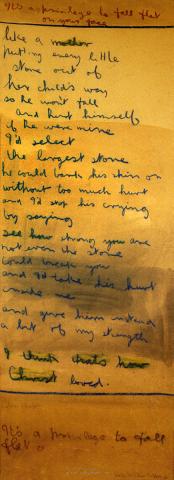 It's a privilege to fall flat
on your face
like a mother
putting every little
stone out of
her child's way
so he won't fall
and hurt himself
if he were mine
I'd select
the largest stone
he could bark his shin on
without too much hurt
and I'd stop his crying
by saying
see how strong you are
not even the stone
could break you
and I'd take his hurt
inside me
and give him instead
a bit of my strength
I think that's how
Christ loved.
It's a privilege to fall
flat